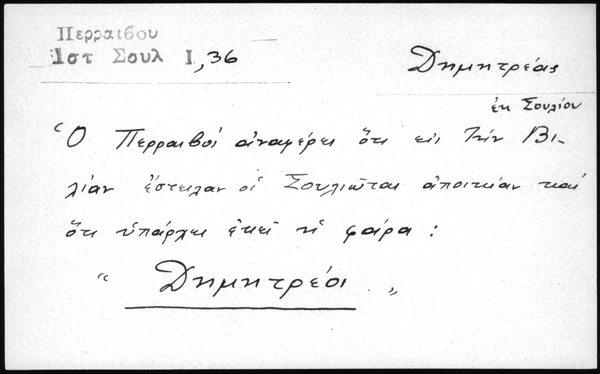 Περραιβου
Ιστ Σουλ Ι, 36
Δημητρέας
ἐκ Σουλίου
Ὁ Περραιβός ἀναφέρει ὅτι εἰς τὴν Βι-
λιάν ἔστειλαν οἱ Σουλιῶται ἀποικίαν καί
ὅτι ὑπάρχει ἐκεῖ ἡ φάρα :
“ Δημητρέοι „